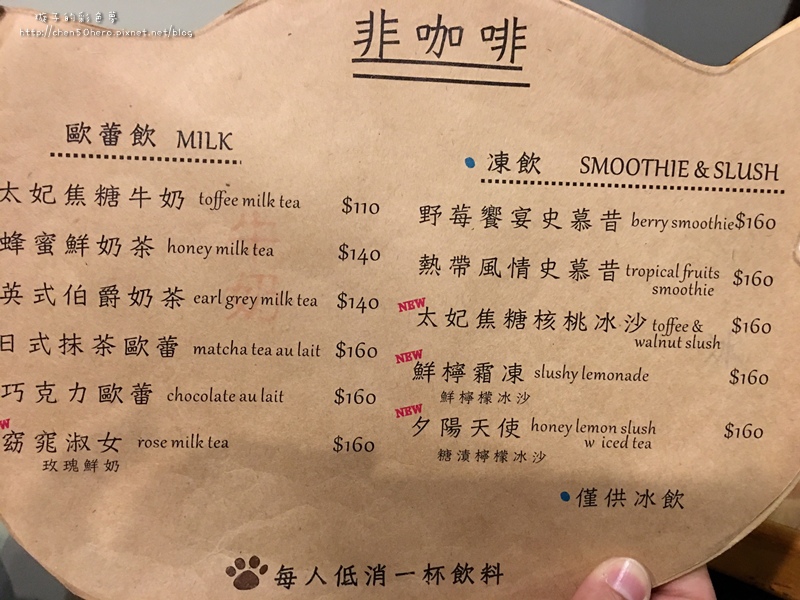 成子的彩色夢
http://chen50hero.pixnet.net/blog
非咖啡
歐蕾飲 MILK
太妃焦糖牛奶 toffee milk tea $110
蜂蜜鮮奶茶 honey milk tea $140
英式伯爵奶茶 earl grey milk tea $140
日式抹茶歐蕾 matcha tea au lait $160
巧克力歐蕾 chocolate au lait $160
窈窕淑女 rose milk tea $160
玫瑰鮮奶
凍飲 SMOOTHIE & SLUSH
野莓饗宴史慕昔 berry smoothie $160
熱帶風情史慕昔 tropical fruits $160
smoothie
NEW
太妃焦糖核桃冰沙 toffee & $160
walnut slush
NEW
鮮檸霜凍 slushy lemonade $160
鮮檸檬冰沙
NEW
夕陽天使 honey lemon slush $160
w iced tea
糖漬檸檬冰沙
僅供冰飲
每人低消一杯飲料